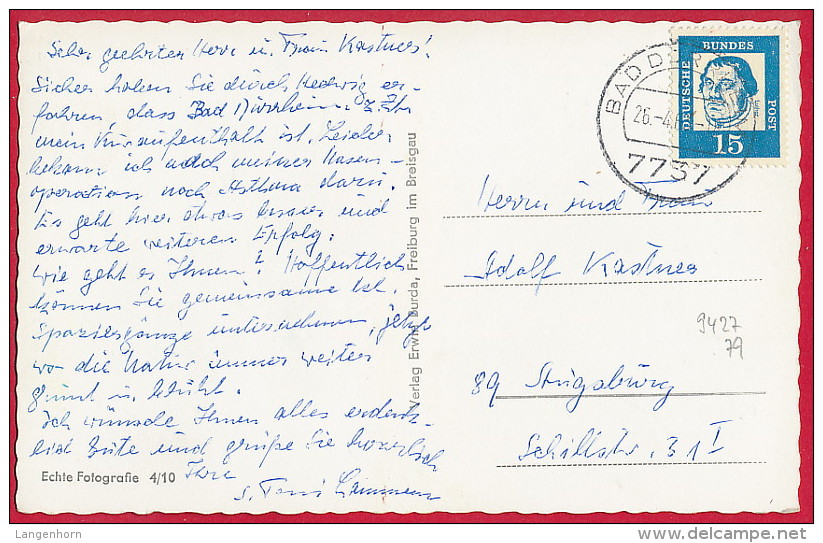 Sehr geehrter Herr u. Frau Kastner!
Sicher haben Sie durch Hedwig er-
fahren, dass Bad Dürrheim z. Zt.
mein Kuraufenthalt ist. Leider
bekam ich nach meiner Nasen-
operation noch Asthma dazu.
Es geht hier etwas besser und
erwarte weiteren Erfolg.
Wie geht es Ihnen? Hoffentlich
können Sie gemeinsame
Spaziergänge unternehmen, jetzt
wo die Natur immer weiter
grünt u. blüht.
Ich wünsche Ihnen alles erdenk-
lich Gute und grüße Sie herzlich
Ihre
Echte Fotografie 4/10
Verlag Erwin Burda, Freiburg im Breisgau
BAD DÜR
26.-4.6
7737
DEUTSCHE
BUNDES
POST
15
Herrn und Frau
Adolf Kastner
9427
79
89 Augsburg
Schillstr. 31 I
Langenhorn
delcampe.net